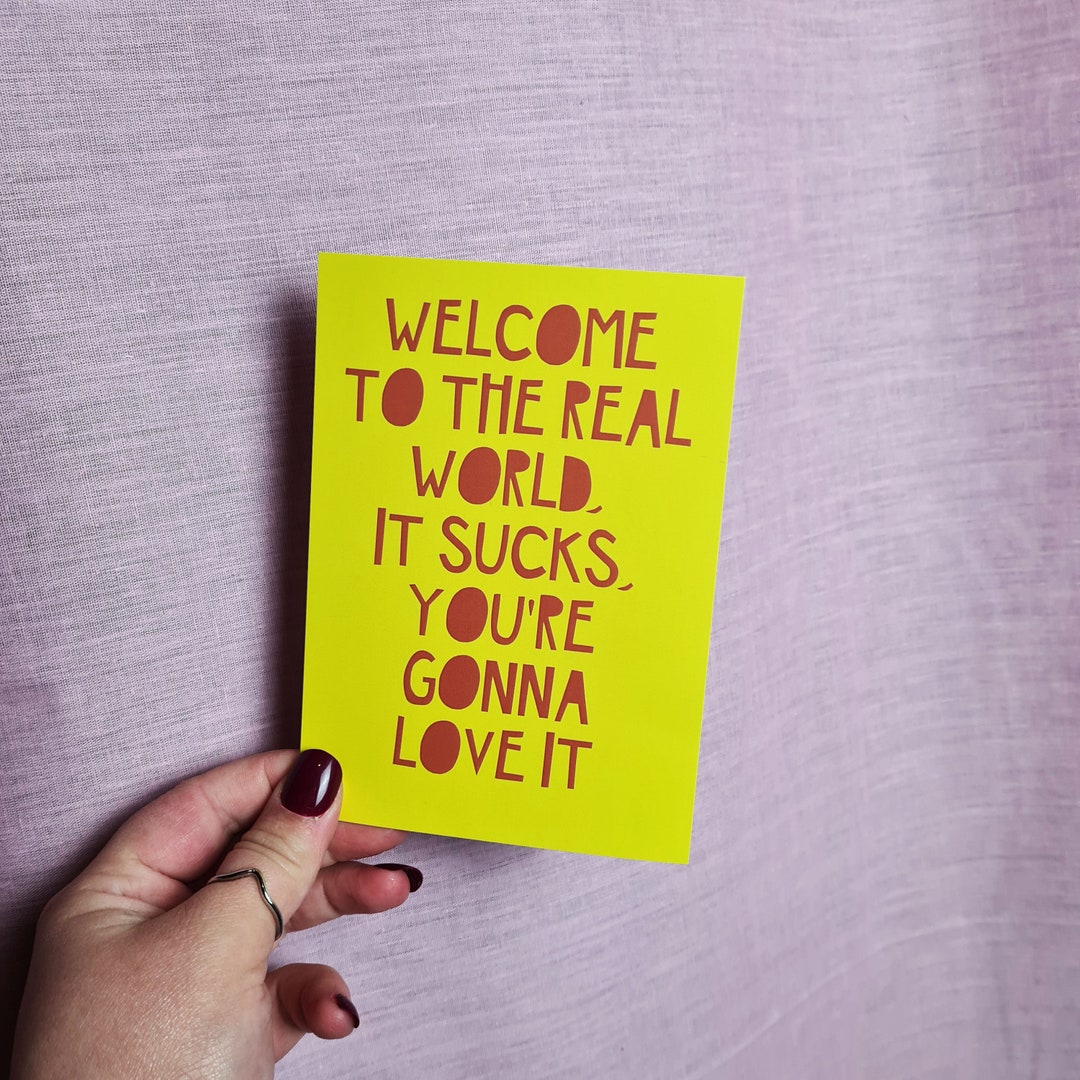 WELCOME
TO THE REAL
WORLD,
IT SUCKS,
YOU'RE
GONNA
LOVE IT